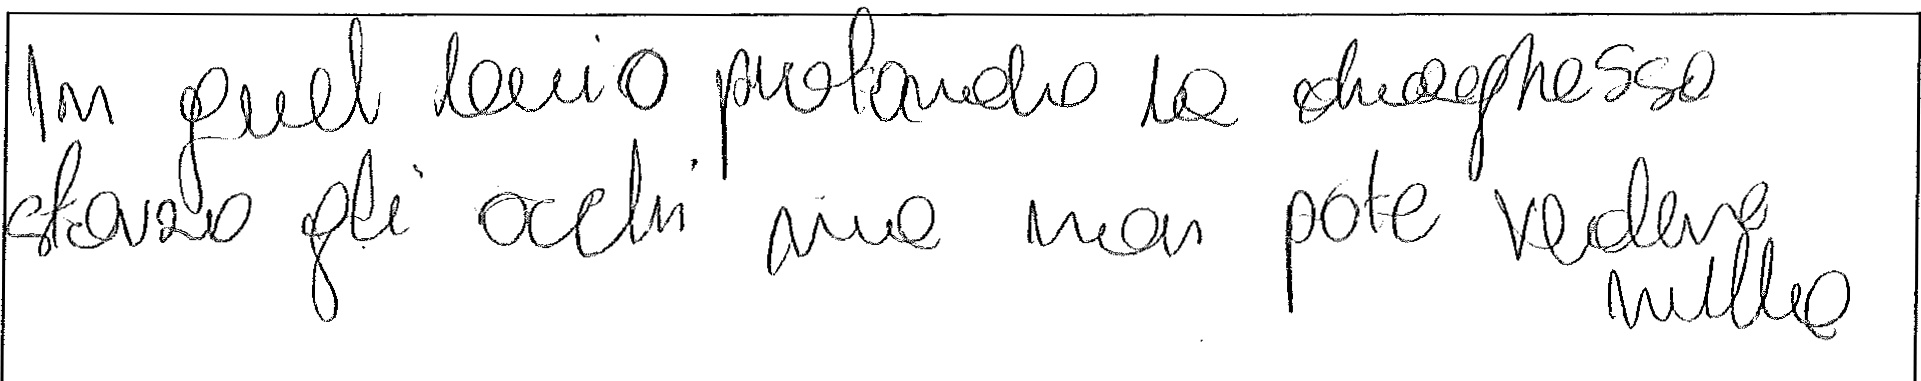 In quel buio profondo la draghessa
sforzo gli occhi ma non pote vedere
nulla